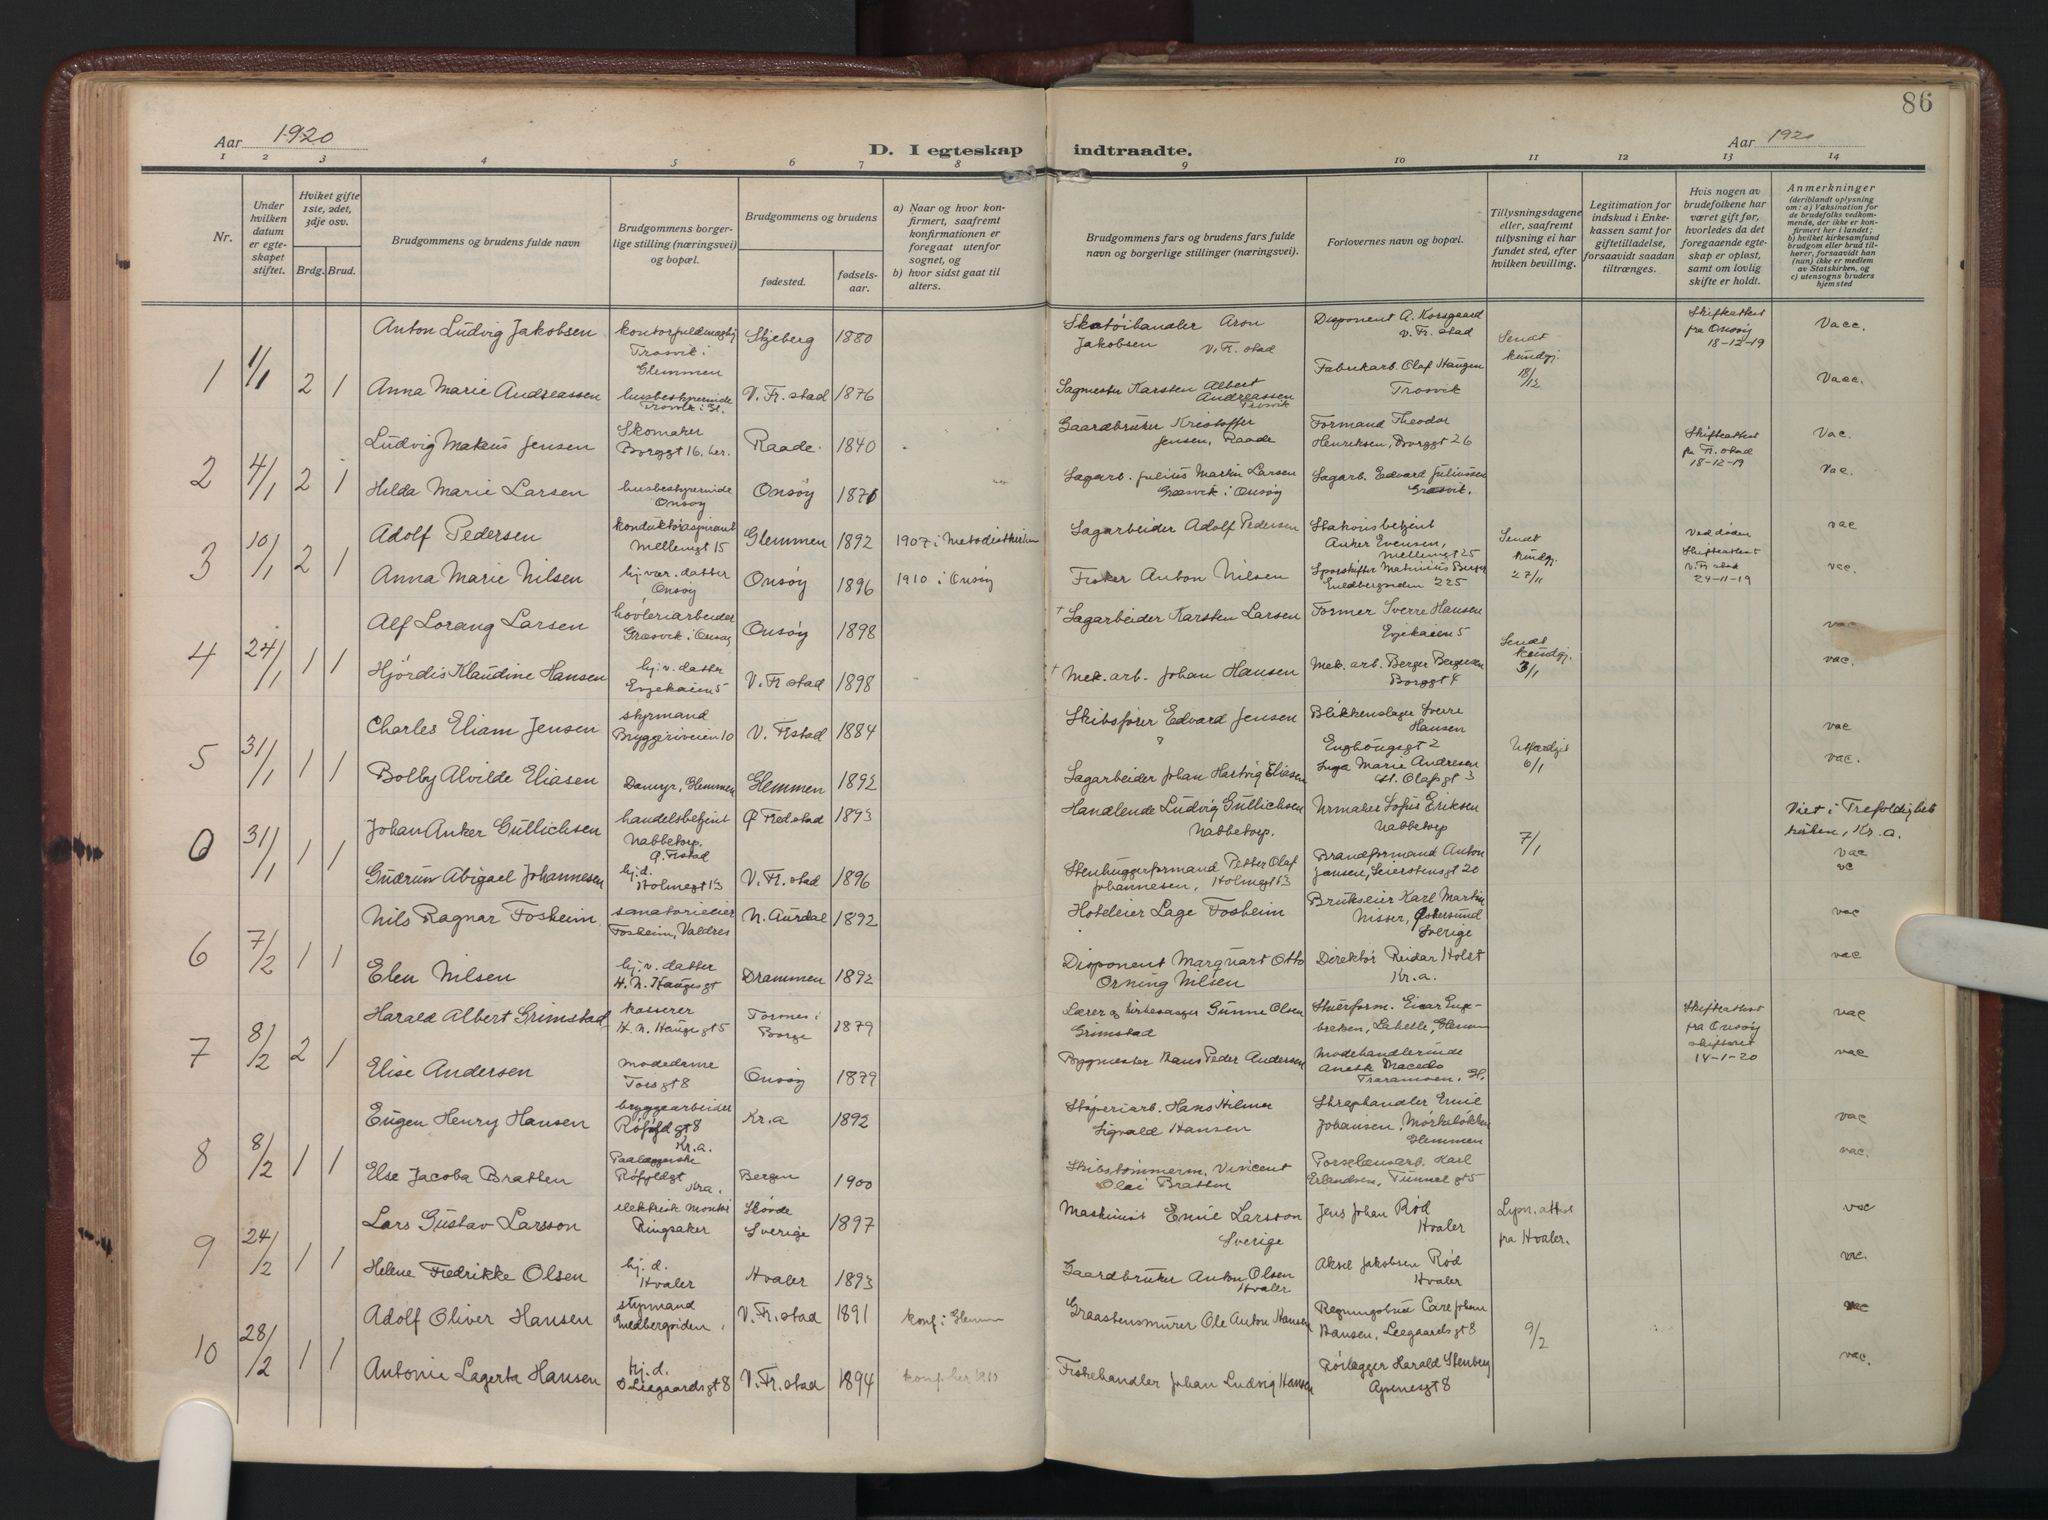 86
Aar 1920
D. I egteskap indtraadte.
Aar 1920
1 2 3 4 5 6 7 8 9 10 11 12 13 14
Nr.
Under hvilken datum er egteskapet stiftet.
Hviket gifte 1ste, 2det, 3dje osv.
Brdg. Brud.
Brudgommens og brudens fulde navn
Brudgommens borgerlige stilling (næringsvei) og bopæl.
Brudgommens og brudens
fødested.
fødselsaar.
a) Naar og hvor konfirmert, saafremt konfirmationen er foregaat utenfor sognet, og
b) hvor sidst gaat til alters.
Brudgommens fars og brudens fars fulde navn og borgerlige stillinger (næringsvei).
Forlovernes navn og bopæl.
Tillysningsdagene eller, saafremt tillysning ei har fundet sted, efter hvilken bevilling.
Legitimation for indskud i Enkekassen samt for giftetilladelse, forsaavidt saadan tiltrænges.
Hvis nogen av brudefolkene har været gift før, hvorledes da det foregaaende egteskap er opløst, samt om lovlig skifte er holdt.
Anmerkninger (deriblandt oplysning om: a) Vaksination for de brudefolks vedkommende, der ikke er konfirmert her i landet; b) hvilket kirkesamfund brudgom eller brud tilhører, forsaavidt han (hun) ikke er medlem av Statskirken, og c) utensogns bruders hjemsted
1 1/1 2 1
Anton Ludvig Jakobsen
kontorfuldmægtig Trosvik i Glemmen
Skjeberg 1880
Skotøihandler Aron Jakobsen V. Fr. stad
Disponent A. Korsgaard V. Fr. stad
Sendt kundgj. 18/12
Skifteattest fra Onsøy 18-12-19
Vacc.
Anna Marie Andreassen
husbestyrerinde Trosvik i Gl.
V. Fr. stad 1876
Sagmester Karsten Albert Andreassen Trosvik
Fabrikarb. Olaf Haugen Trosvik
Vacc.
2 4/1 2 1
Ludvig Makus Jensen
Skomaker Borggt 16, her.
Raade. 1840
Gaardbruker Kristoffer Jensen, Raade
Formand Theodor Henriksen, Borggt 26
Skifteattest fra Fr. stad 18-12-19
Vac.
Hilda Marie Larsen
husbestyrerinde Onsøy
Onsøy 1871
Sagarb. Julius Martin Larsen Græsvik i Onsøy
Sagarb. Edvard Juliussen Græsvik.
Vac.
3 10/1 2 1
Adolf Pedersen
konduktøraspirant Mellemgt 15
Glemmen 1892
1907 i Metodistkirken
Sagarbeider Adolf Pedersen
Stationsbetjent Anker Evensen, Mellemgt 25
Sendt kundgj. 27/11
Ved døden Skifteattest V. Fr stad 24-11-19
vac
Anna Marie Nilsen
hj. vær. datter Onsøy
Onsøy 1896
1910 i Onsøy
Fisker Anton Nilsen
Sporskifter Mathinius Berger 225
vac.
4 24/1 1 1
Alf Lorang Larsen
høvleriarbeider Græsvik i Onsøy
Onsøy 1898
† Sagarbeider Karsten Larsen
Former Sverre Hansen Evjekaien 5
Sendt kundgj. 3/1
vac
Hjördis Klaudine Hansen
hj. v. datter Evjekaien 5
V. Fr stad 1898
† Mek. arb. Johan Hansen
Mek. arb. Berger Bergersen Borggt 4
vac.
5 31/1 1 1
Charles Eliam Jensen
styrmand Bryggeriveien 10
V. Frstad 1884
Skibsfører Edvard Jensen ?
Blikkenslager Sverre Hansen Enghaugsgt 2
Utfærdiget 6/1
vac
Bolby Alvilde Eliasen
Damyr, Glemmen
Glemmen 1892
Sagarbeider Johan Hartvig Eliasen
Inga Marie Andresen St. Olafsgt 3
vac.
0 31/1 1 1
Johan Anker Gullichsen
handelsbetjent Nabbetorp. Ø. Frstad
Ø Fredstad 1893
Handlende Ludvig Gullichsen Nabbetorp.
Urmaker Sofus Eriksen Nabbetorp
7/1
Viet i Trefoldighetskirken, Kr. a.
vac
Gudrun Abigael Johannesen
hj. d. Holmegt 13
V. Fr. stad 1896
Stenhuggerformand Petter Olaf Johannesen, Holmegt 13
Brandformand Anton Jansen, Seierstensgt 20
vc
6 7/2 1 1
Nils Ragnar Fosheim
sanatorieeier Fosheim, Valdres
N. Aurdal 1892
Hoteleier Lage Fosheim
Brukseier Karl Martin Nisser, Østersund Sverige
vac
Elen Nilsen
hj. v. datter H. N. Haugesgt
Drammen 1892
Disponent Marquart Otto Orning Nilsen
Direktör Reidar Holst Kr. a.
vac
7 8/2 2 1
Harald Albert Grimstad
kasserer H. N. Hauge gt 5
Torsnes i Borge 1879
Lærer og kirkesanger Gunne Olsen Grimstad
Skuerform. Einar Engebretsen, Labelle, Glemmen
Skifteattest fra Onsøy skifteret 14-1-20
vac
Elise Andersen
modedame Torsgt 8
Onsøy 1879
Bygmester Hans Peder Andersen
Modehandlerinde Anette Macedo Traramoen. Gl.
vac
8 8/2 1 1
Eugen Henry Hansen
bryggearbeider gt 8 Kr. a.
Kr. a 1892
Støperiarb. Hans Hilmer Sigvald Hansen
Skraphandler Emil Johansen, Mørkeløkken Glemmen
vac
Else Jacoba Bratten
Kra.
Bergen 1900
Skibstømmerm. Vincent Olai Bratten
Porselensarb. Karl Erlandsen, Tunnelgt 5
vac.
9 24/2 1 1
Lars Gustav Larsson
elektrisk Montør Ringsaker
Skövde Sverige 1897
Maskinist Emil Larsson Sverige
Jens Johan Rød Hvaler
Lysn. attest fra Hvaler.
vac
Helene Fredrikke Olsen
hj. d. Hvaler
Hvaler 1893
Gaardbruker Anton Olsen Hvaler
Aksel Jakobsen Rød Hvaler
vac.
10 28/2 1 1
Adolf Oliver Hansen
styrmand Guldbergsiden,
V. Fr. stad 1891
konf. i Glemmen
Graastensmurer Ole Anton Hansen
Carl Johan Hansen, Leegaardsgt 8
9/2
vac
Antonie Lagerta Hansen
hj. d. Leegaardsgt 8
V. Fr. stad 1894
konf. her 1910
Fiskehandler Johan Ludvig Hansen
Rørlægger Harald Stenberg Apenesgt 8
vac.